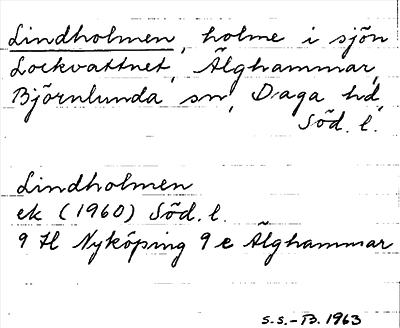 Lindholmen, holme i sjön
Lockvattnet, Älghammar,
Björnlunda sn, Daga hd,
Söd. l.
Lindholmen
ek (1960) Söd. l.
9 H Nyköping 9 e Älghammar
S.S.-B. 1963